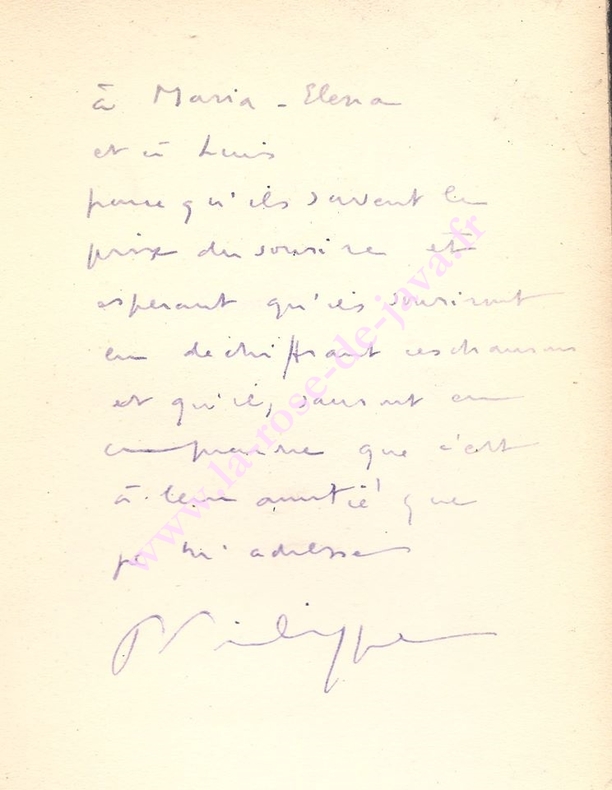 à Maria-Elena
et à Luis
parce qu'ils savent le
prix du sourire et
espérant qu'ils souriront
en déchiffrant ces chansons
et qu'ils sauront en
que c'est
à leur amitié que
je m'adresse
Philippe
www.la-rose-de-java.fr